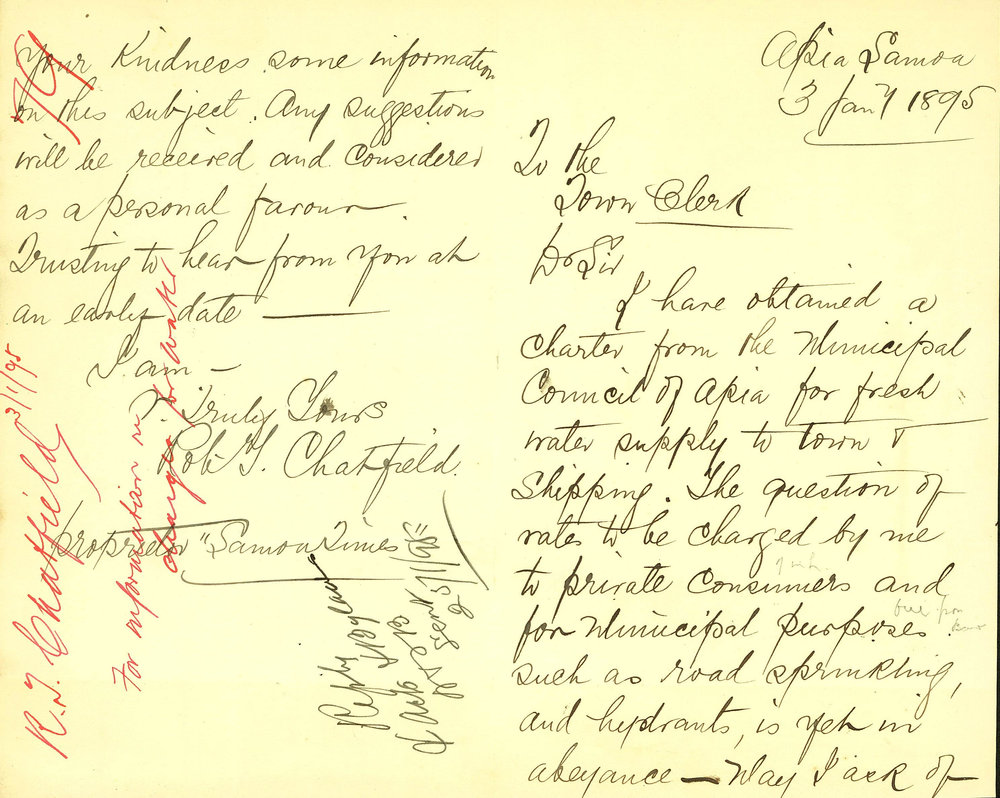 Apia Samoa
3 Jany 1895
To the
Town Clerk
Dr Sir
I have obtained a
Charter from the Municipal
Council of Apia for fresh
water supply to town &
Shipping. The question of
rates to be charged by me
to private Consumers and
for Municipal purposes
such as road sprinkling,
and hydrants, is yet in
abeyance — May I ask of
Your Kindness some information
on this subject. Any suggestions
will be received and Considered
as a personal favour.
Trusting to hear from You at
an early date —
I am —
V. Truly Yours
Robt T. Chatfield.
proprietor "Samoa Times"
R. T. Chatfield 3/1/95
For information re
charges for water
Reply